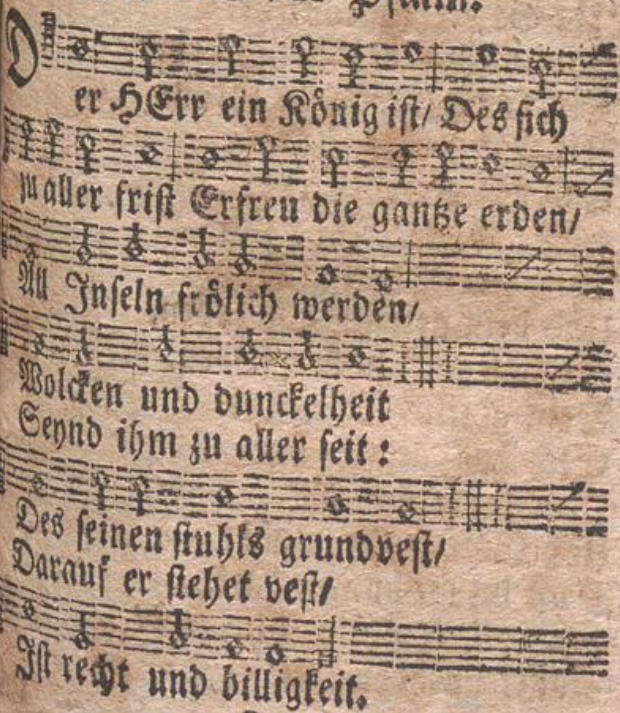 Psalm.
Der HErr ein König ist/ Des sich
zu aller frist Erfreu die gantze erden/
All Inseln frölich werden/
Wolcken und dunckelheit
Seynd ihm zu aller seit:
Des seinen stuhls grundvest/
Darauf er stehet vest/
Ist recht und billigkeit.